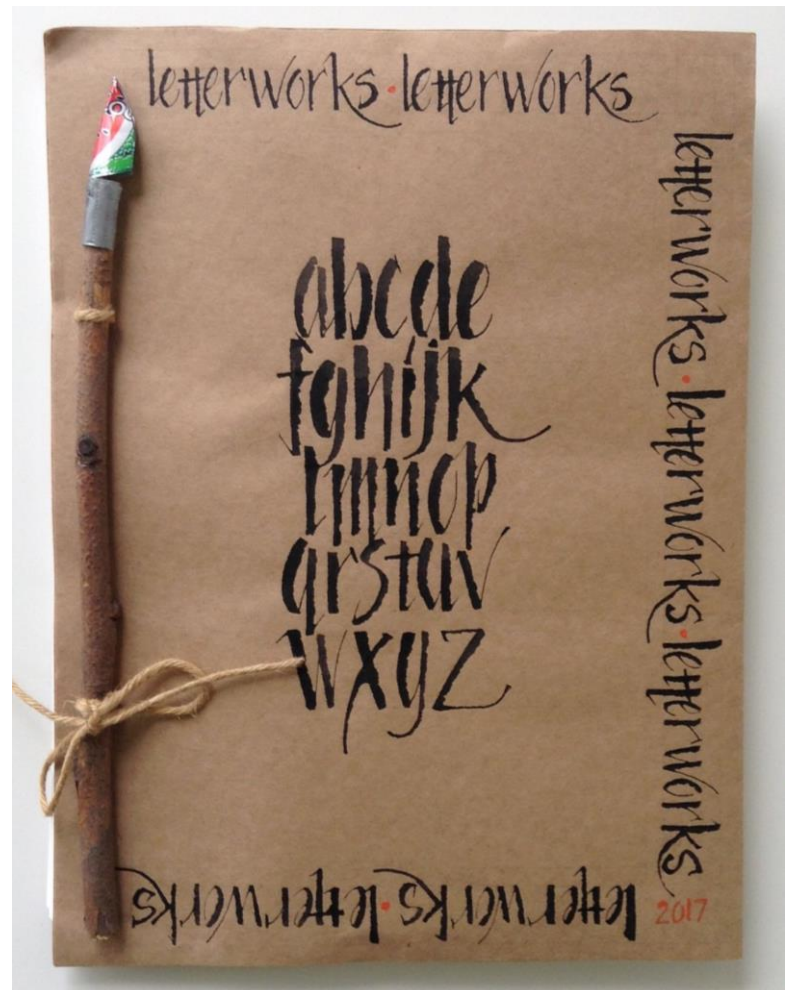 letterworks · letterworks
letterworks · letterworks · letterworks
abcde
fghijk
lmnop
qrstuv
wxyz
letterworks · letterworks
2017